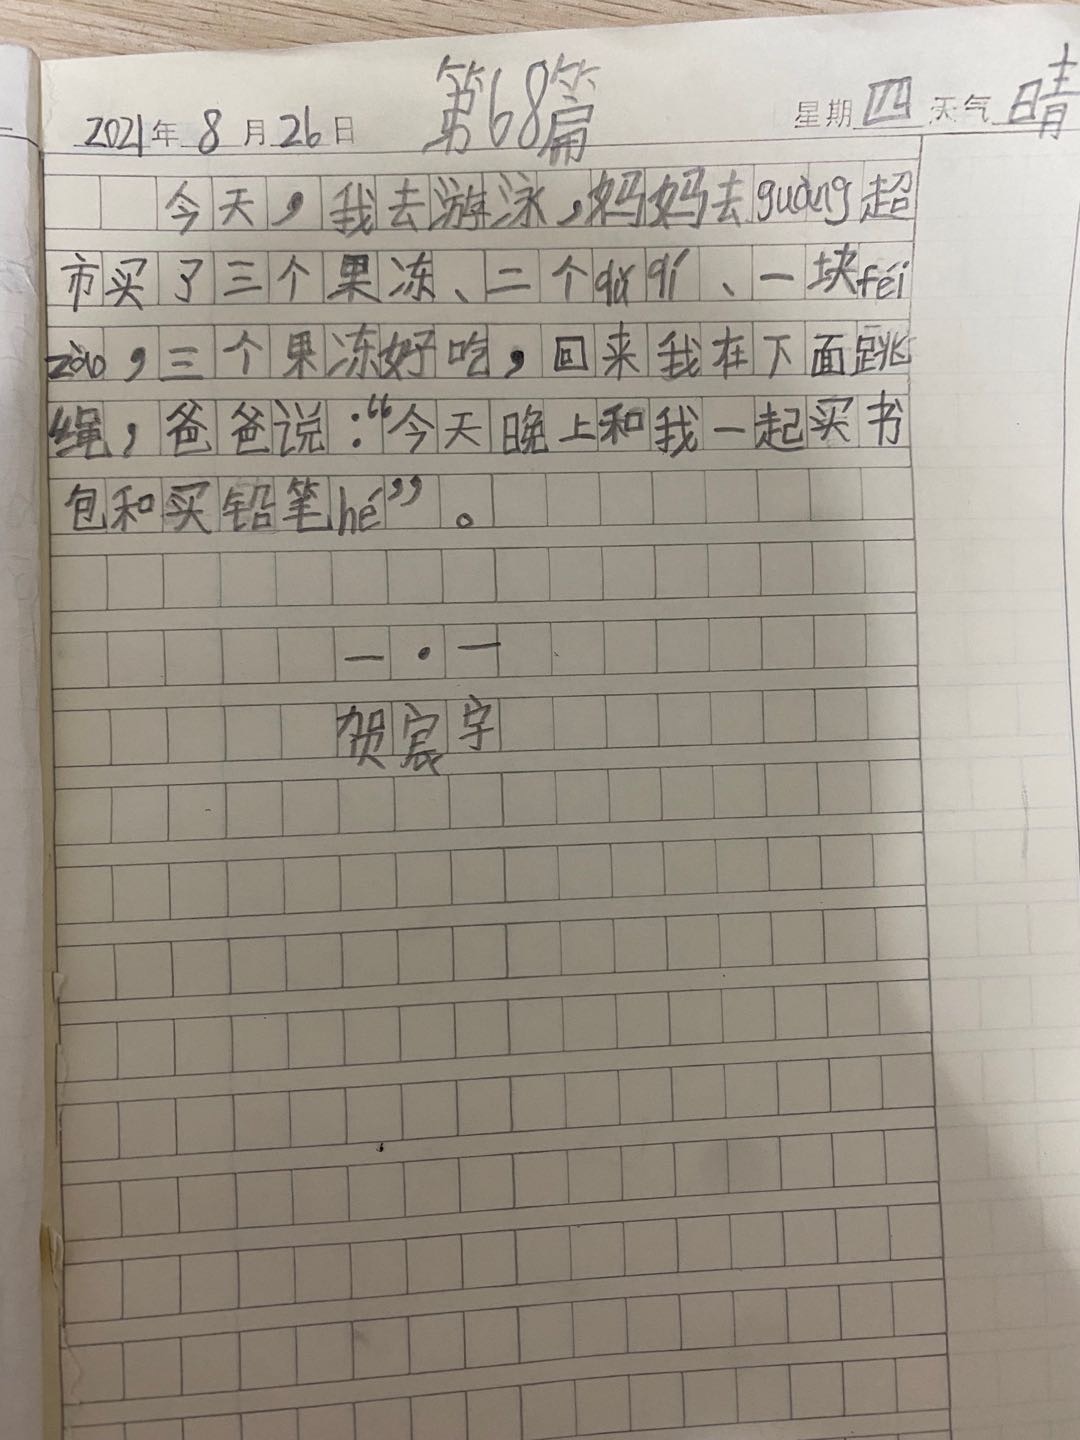 第68篇
2021年8月26日 星期四 天气晴
今天，我去游泳，妈妈去guàng超
市买了三个果冻、二个qū qí、一块féi
zào，三个果冻好吃，回来我在下面跳
绳，爸爸说：“今天晚上和我一起买书
包和买铅笔hé”。
一·一
贺宸宇